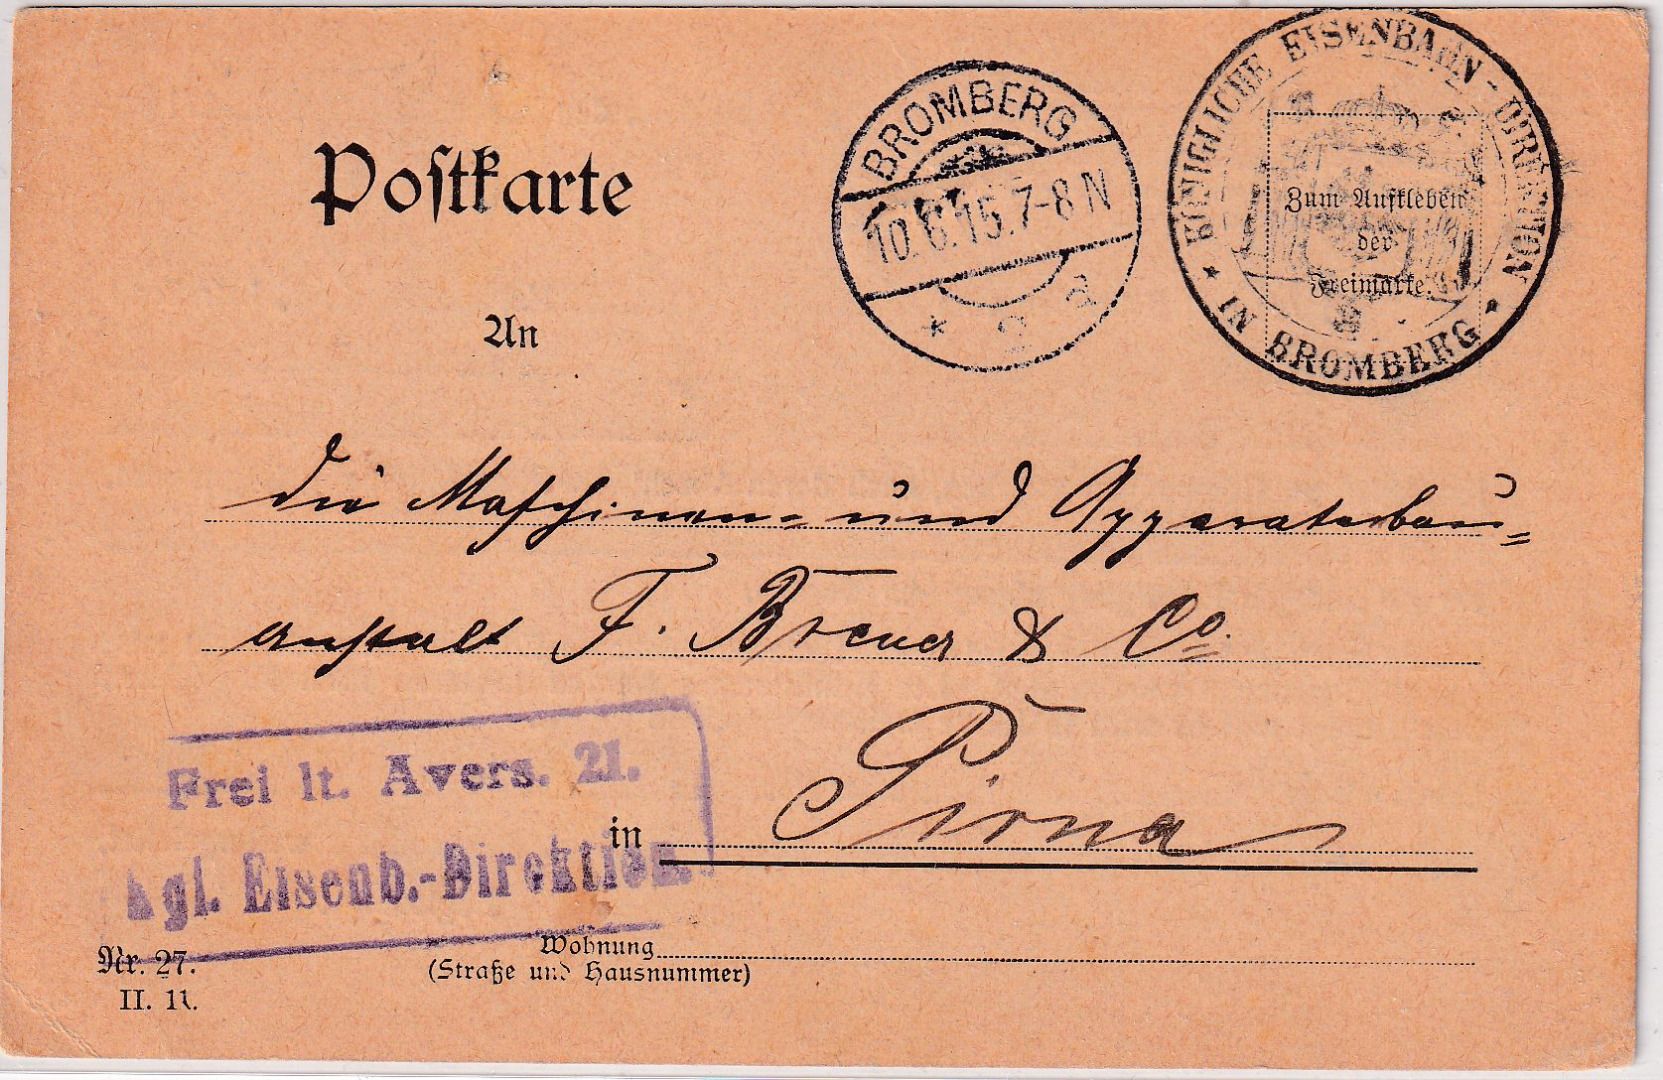 Postkarte
BROMBERG
10.6.15.7-8N
* 2 a
KÖNIGLICHE EISENBAHN-DIREKTION
* IN BROMBERG *
Zum Aufkleben
der
Freimarke.
An
die Maschinen- und Apparatebau-
anstalt F. Breuer & Co.
Frei lt. Avers. 21.
Kgl. Eisenb.-Direktion.
in Pirna
Wohnung
(Straße und Hausnummer)
Nr. 27.
II. 11.